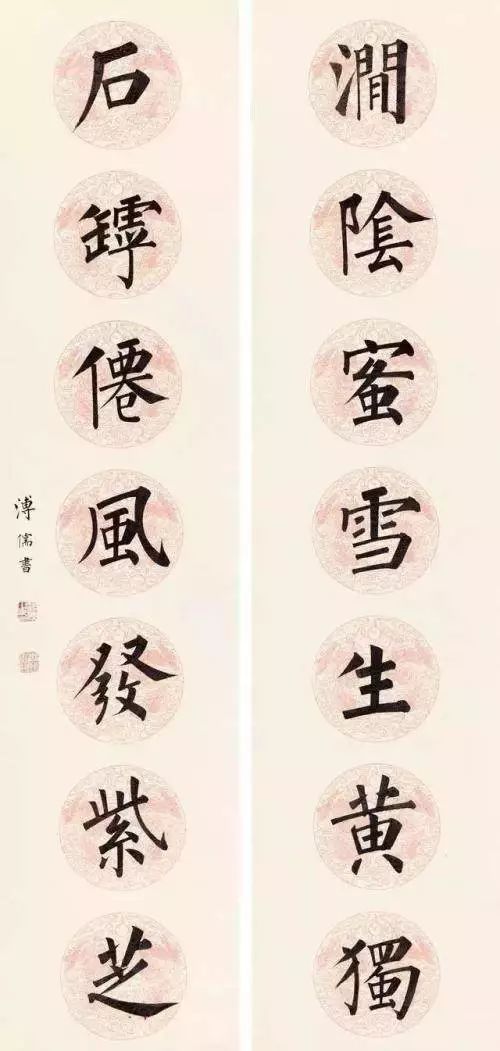 澗陰蜜雪生黄獨
石罅僊風發紫芝
溥儒書